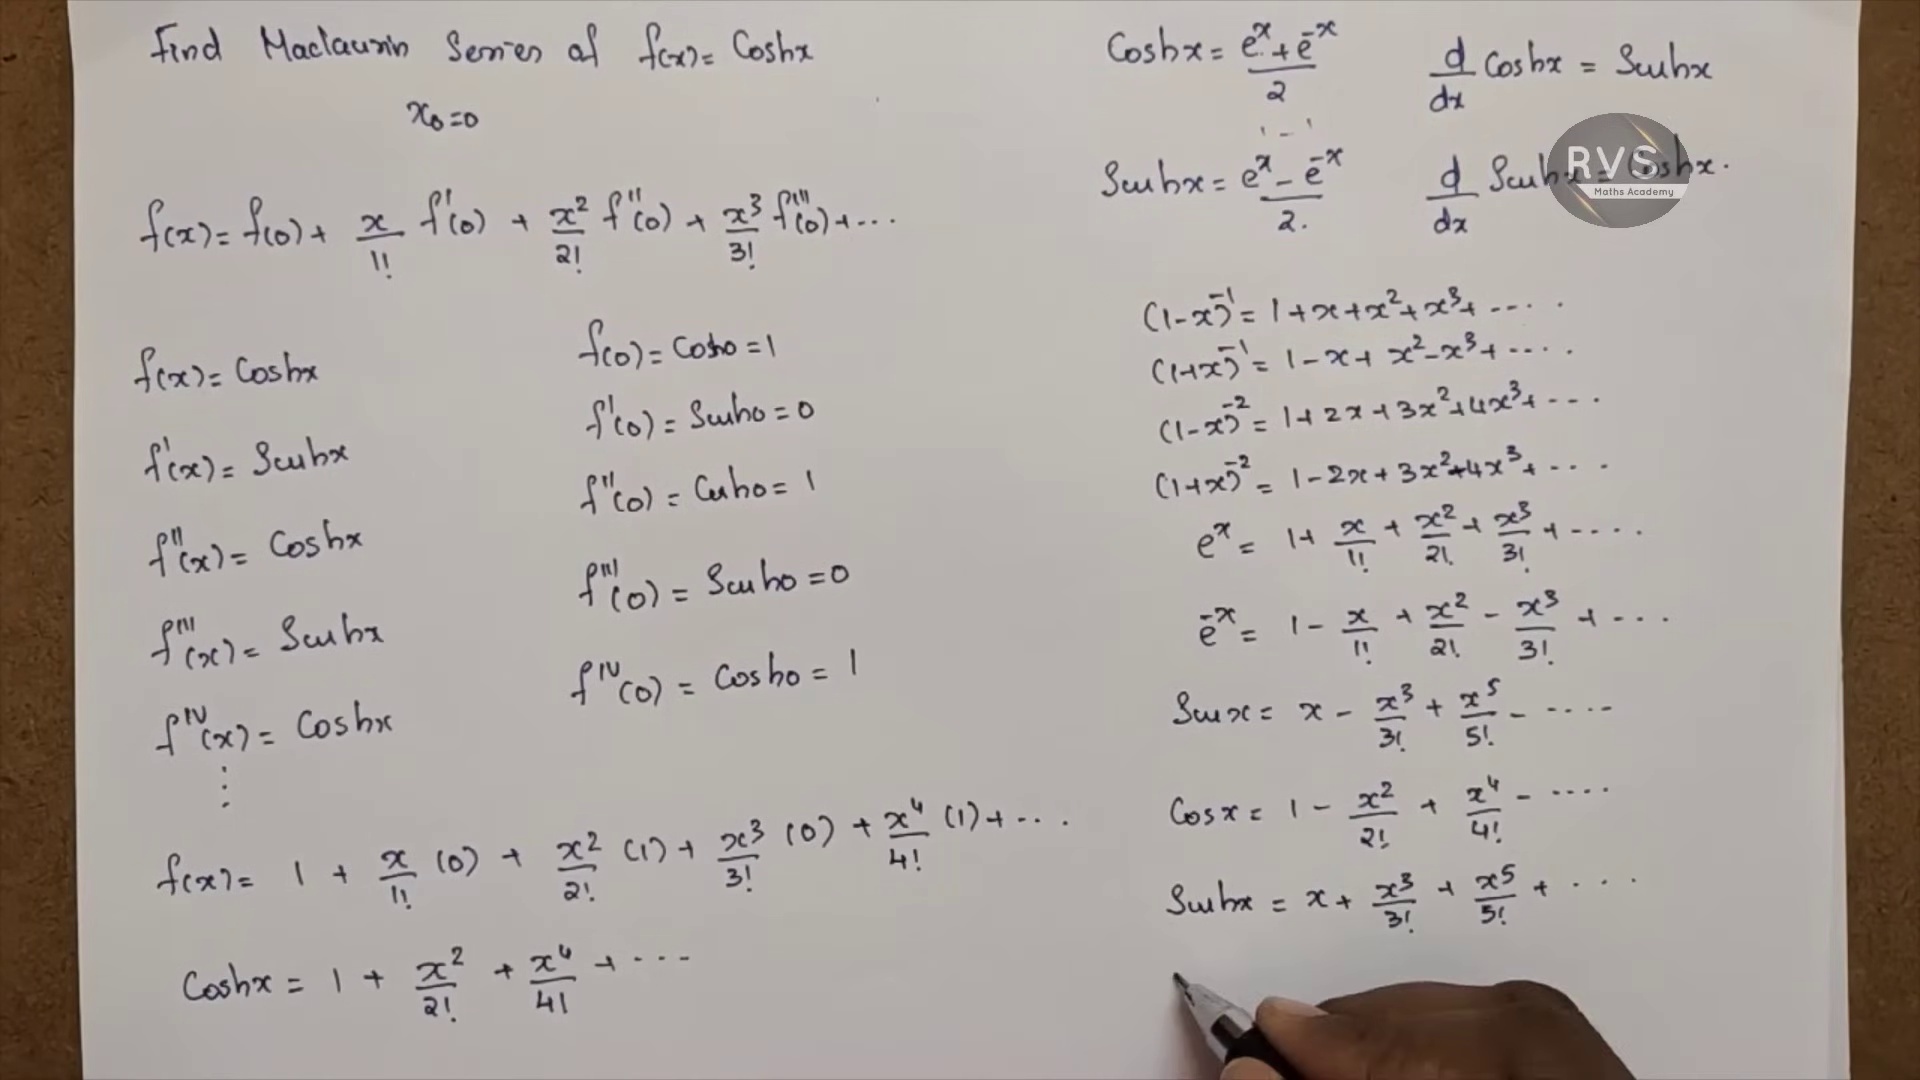 Find Maclaurin Series of f(x) = Coshx
x₀=0
f(x) = f(0) + x/1! f'(0) + x²/2! f''(0) + x³/3! f'''(0) + ...
f(x) = Coshx
f(0) = Cosh0 = 1
f'(x) = Sinhx
f'(0) = Sinh0 = 0
f''(x) = Coshx
f''(0) = Cosh0 = 1
f'''(x) = Sinhx
f'''(0) = Sinh0 = 0
f^IV(x) = Coshx
f^IV(0) = Cosh0 = 1
⋮
f(x) = 1 + x/1! (0) + x²/2! (1) + x³/3! (0) + x⁴/4! (1) + ...
Coshx = 1 + x²/2! + x⁴/4! + ...
Coshx = (eˣ + e⁻ˣ)/2
d/dx Coshx = Sinhx
Sinhx = (eˣ - e⁻ˣ)/2.
d/dx Sinhx = Coshx.
RVS
Maths Academy
(1-x)⁻¹ = 1+x+x²+x³+ ....
(1+x)⁻¹ = 1-x+x²-x³+ ....
(1-x)⁻² = 1+2x+3x²+4x³+ ...
(1+x)⁻² = 1-2x+3x²-4x³+ ...
eˣ = 1 + x/1! + x²/2! + x³/3! + ....
e⁻ˣ = 1 - x/1! + x²/2! - x³/3! + ...
Sinx = x - x³/3! + x⁵/5! - ....
Cosx = 1 - x²/2! + x⁴/4! - ....
Sinhx = x + x³/3! + x⁵/5! + ...